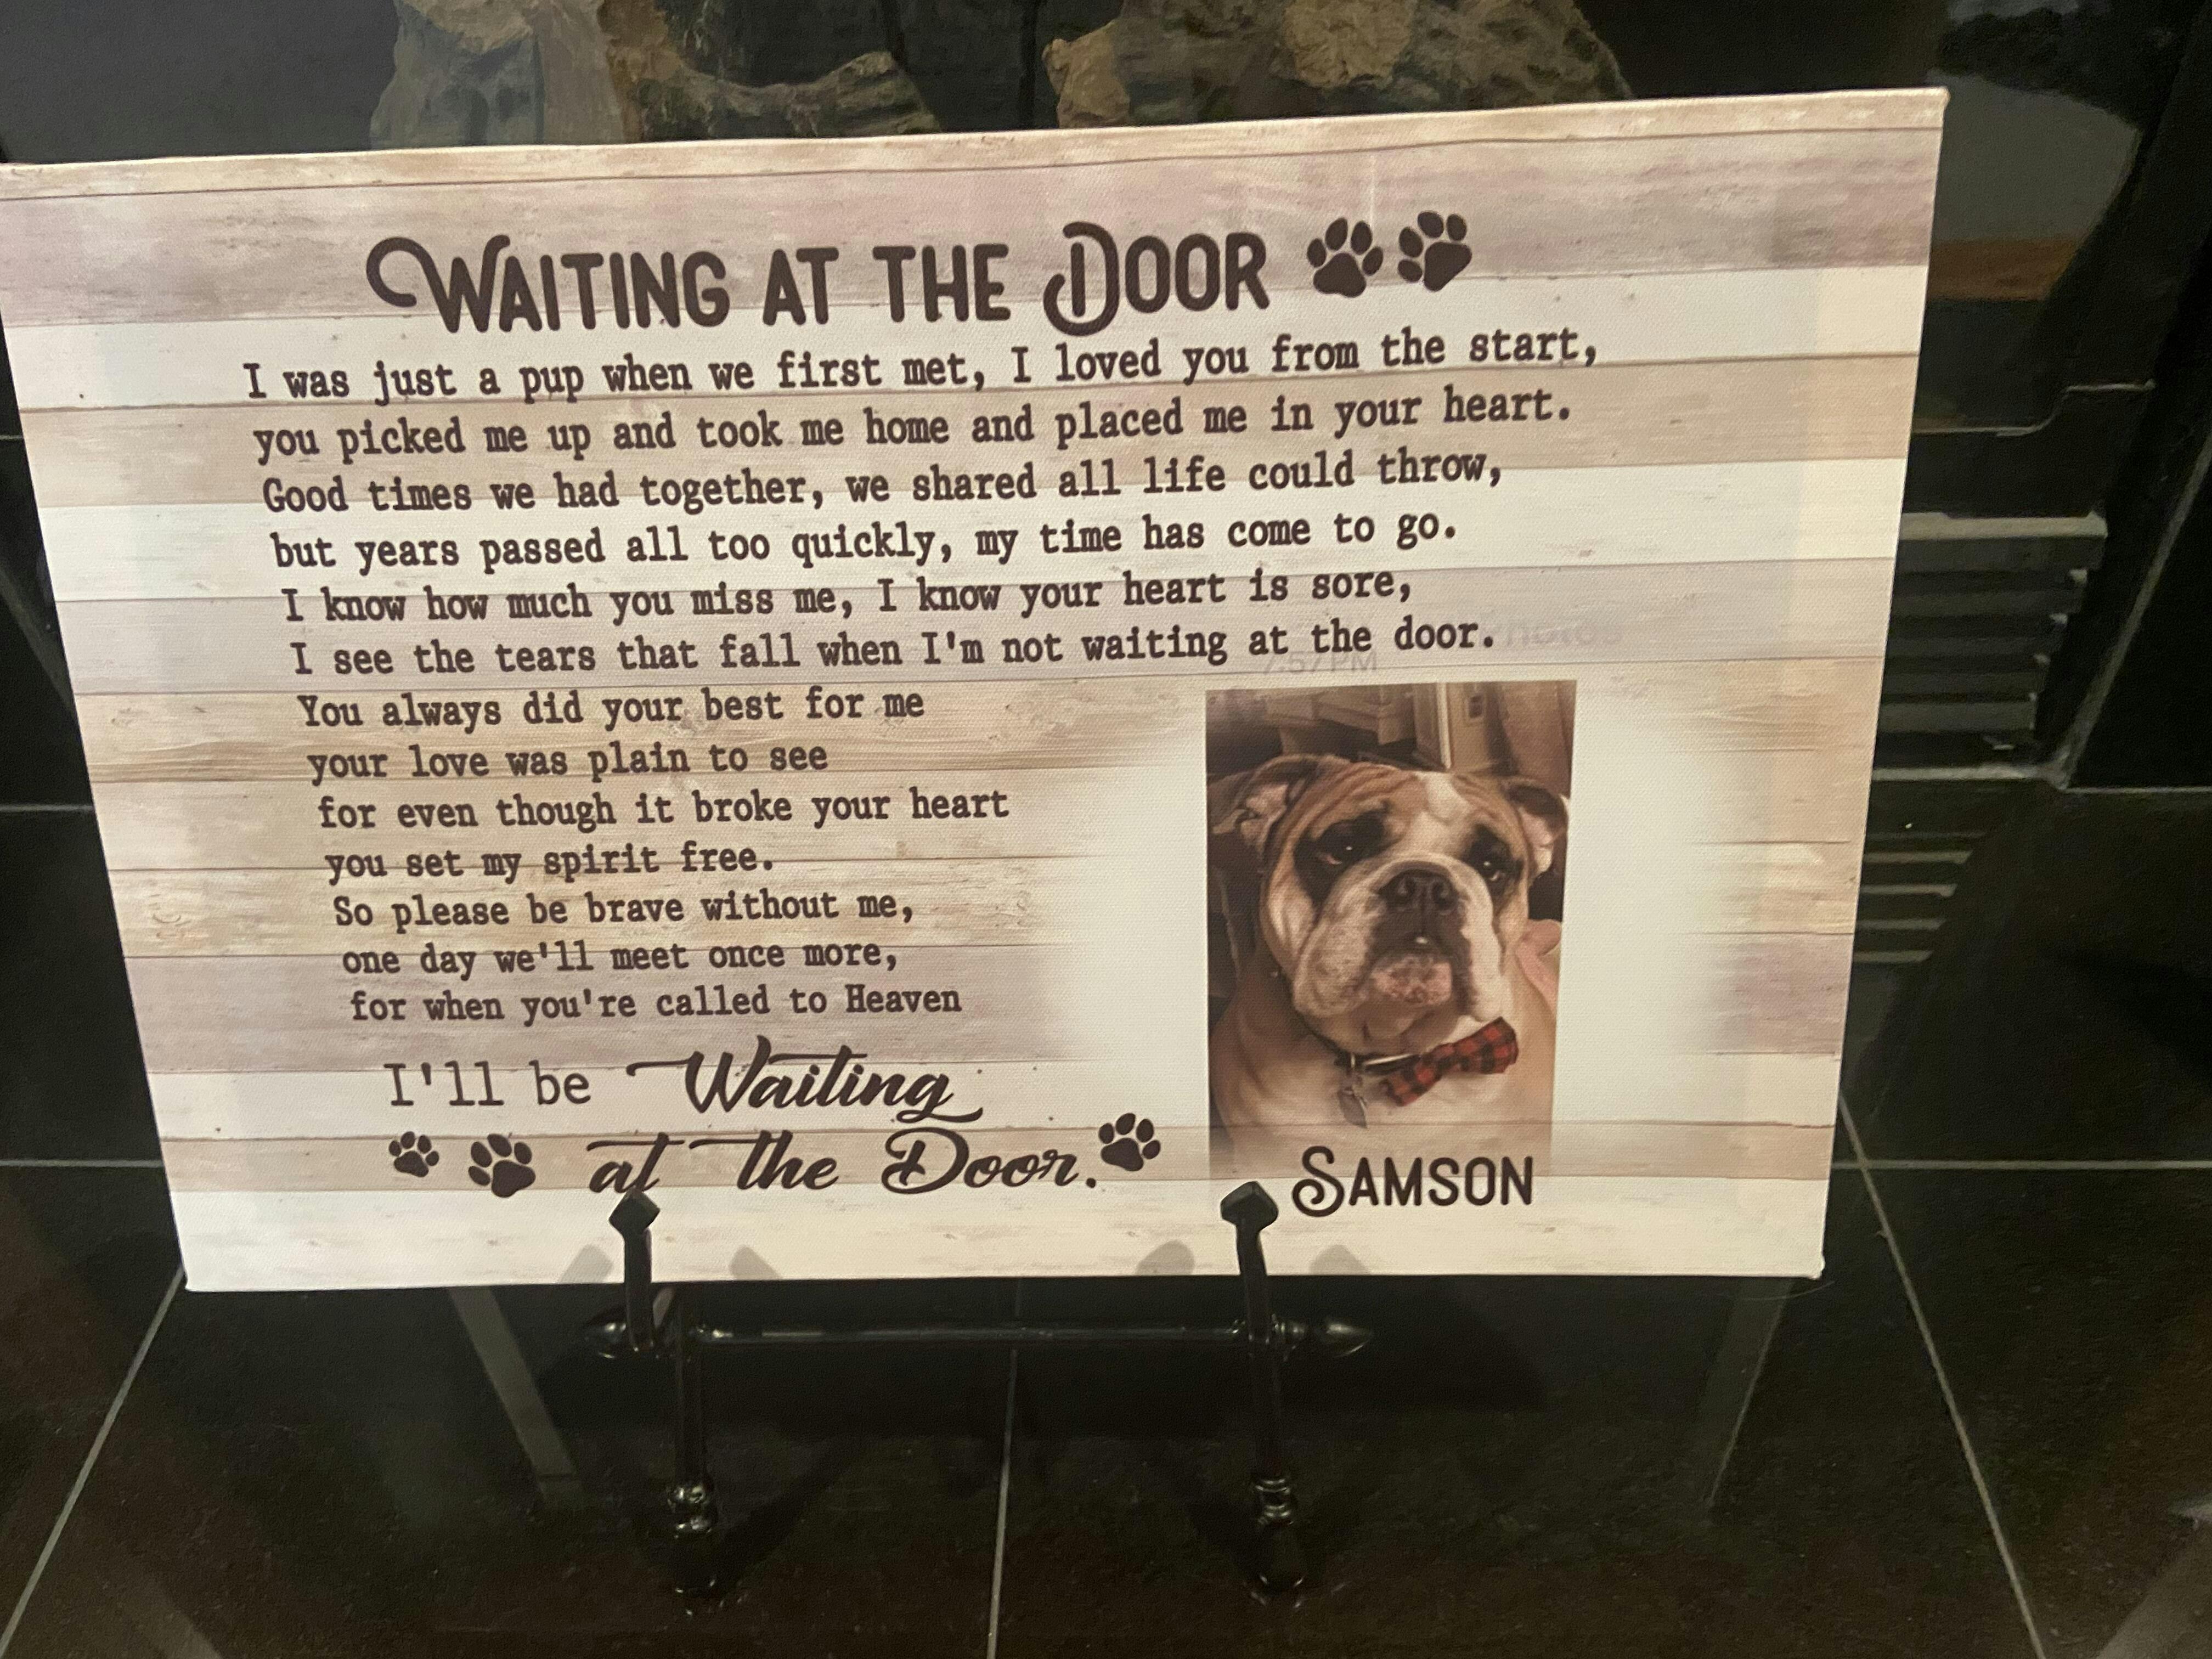 WAITING AT THE DOOR
I was just a pup when we first met, I loved you from the start,
you picked me up and took me home and placed me in your heart.
Good times we had together, we shared all life could throw,
but years passed all too quickly, my time has come to go.
I know how much you miss me, I know your heart is sore,
I see the tears that fall when I'm not waiting at the door.
7:57 PM
You always did your best for me
your love was plain to see
for even though it broke your heart
you set my spirit free.
So please be brave without me,
one day we'll meet once more,
for when you're called to Heaven
I'll be Waiting
at the Door.
SAMSON